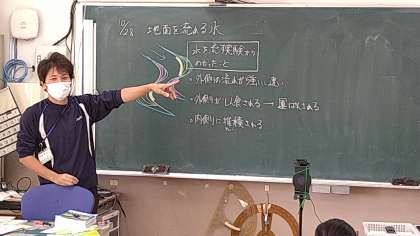 10/28 地面を流れる水
水を流す実験から
わかったこと
・外側の流れが強い、速い
・外側がしん食される→運ぱんされる
・内側に堆積される